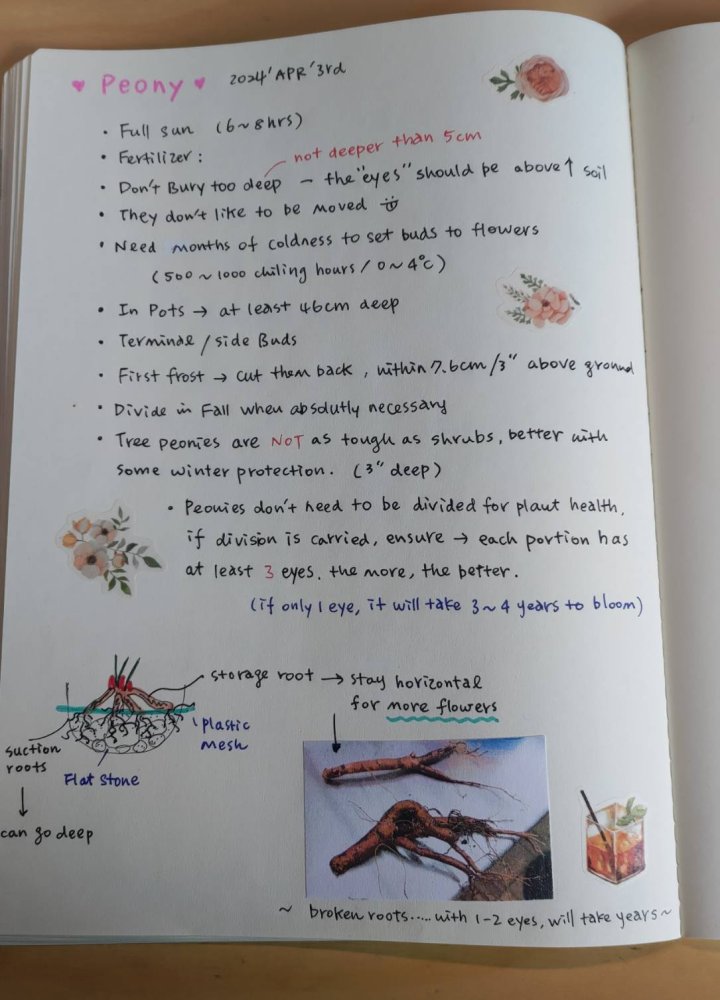 ♥ Peony ♥ 2024'APR'3rd
• Full sun (6~8hrs)
• Fertilizer:
not deeper than 5cm
• Don't Bury too deep – the "eyes" should be above ↑ soil
• They don't like to be moved
• Need months of coldness to set buds to flowers
(500 ~ 1000 chiling hours / 0~4°C)
• In Pots → at least 46cm deep
• Terminal / side Buds
• First frost → cut them back, within 7.6cm/3" above ground
• Divide in Fall when absolutly necessary
• Tree peonies are NOT as tough as shrubs, better with
some winter protection. (3" deep)
• Peonies don't need to be divided for plant health,
if division is carried, ensure → each portion has
at least 3 eyes. the more, the better.
(if only 1 eye, it will take 3~4 years to bloom)
storage root → stay horizontal
for more flowers
plastic
mesh
suction
roots
Flat stone
can go deep
~ broken roots..... with 1-2 eyes, will take years ~